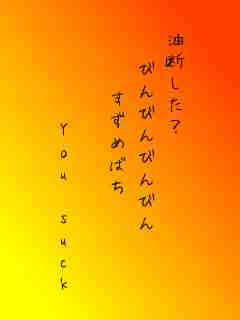 油断した?
びんびんびんびん
すずめばち
You suck